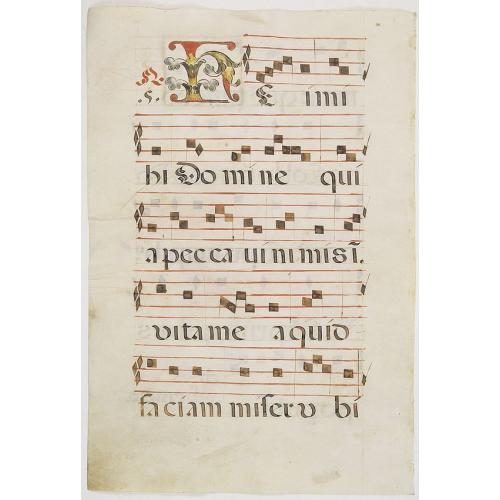 R. HE imi
.5.
hi Domine qui
a peccaui nimis ĩ.
vita me a quid
faciam miser v bi